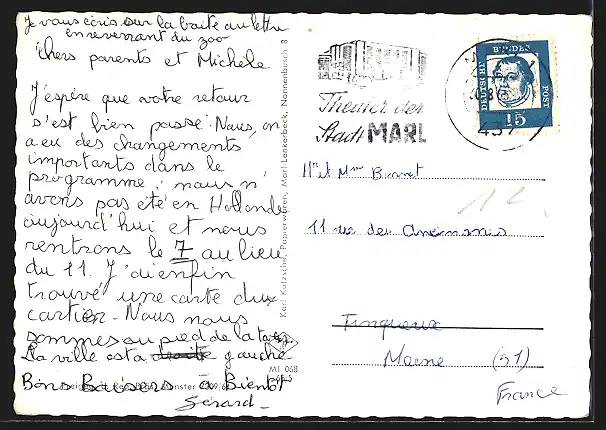 Je vous écris sur la boite au lettre
en revenant du zoo
Chers parents et Michèle
J'éspère que votre retour
s'est bien passé. Nous, on
a eu des changements
importants dans le
programme, nous n'
avons pas été en Hollande
aujourd'hui et nous
rentrons le 7 au lieu
du 11. J'ai enfin
trouvé une carte du
cartier. Nous nous
sommes au pied de la tour
La ville est a droite gauche
Bons Baisers a Bientôt
Gérard
Karl Kutzscha, Papierwaren, Marl-Lenkerbeck, Nonnenbusch 8
MI 068
Theater der
Stadt MARL
DEUTSCHE BUNDESPOST
15
437
Mr et Mme
11 rue des
Tinqueux
Marne (51)
France